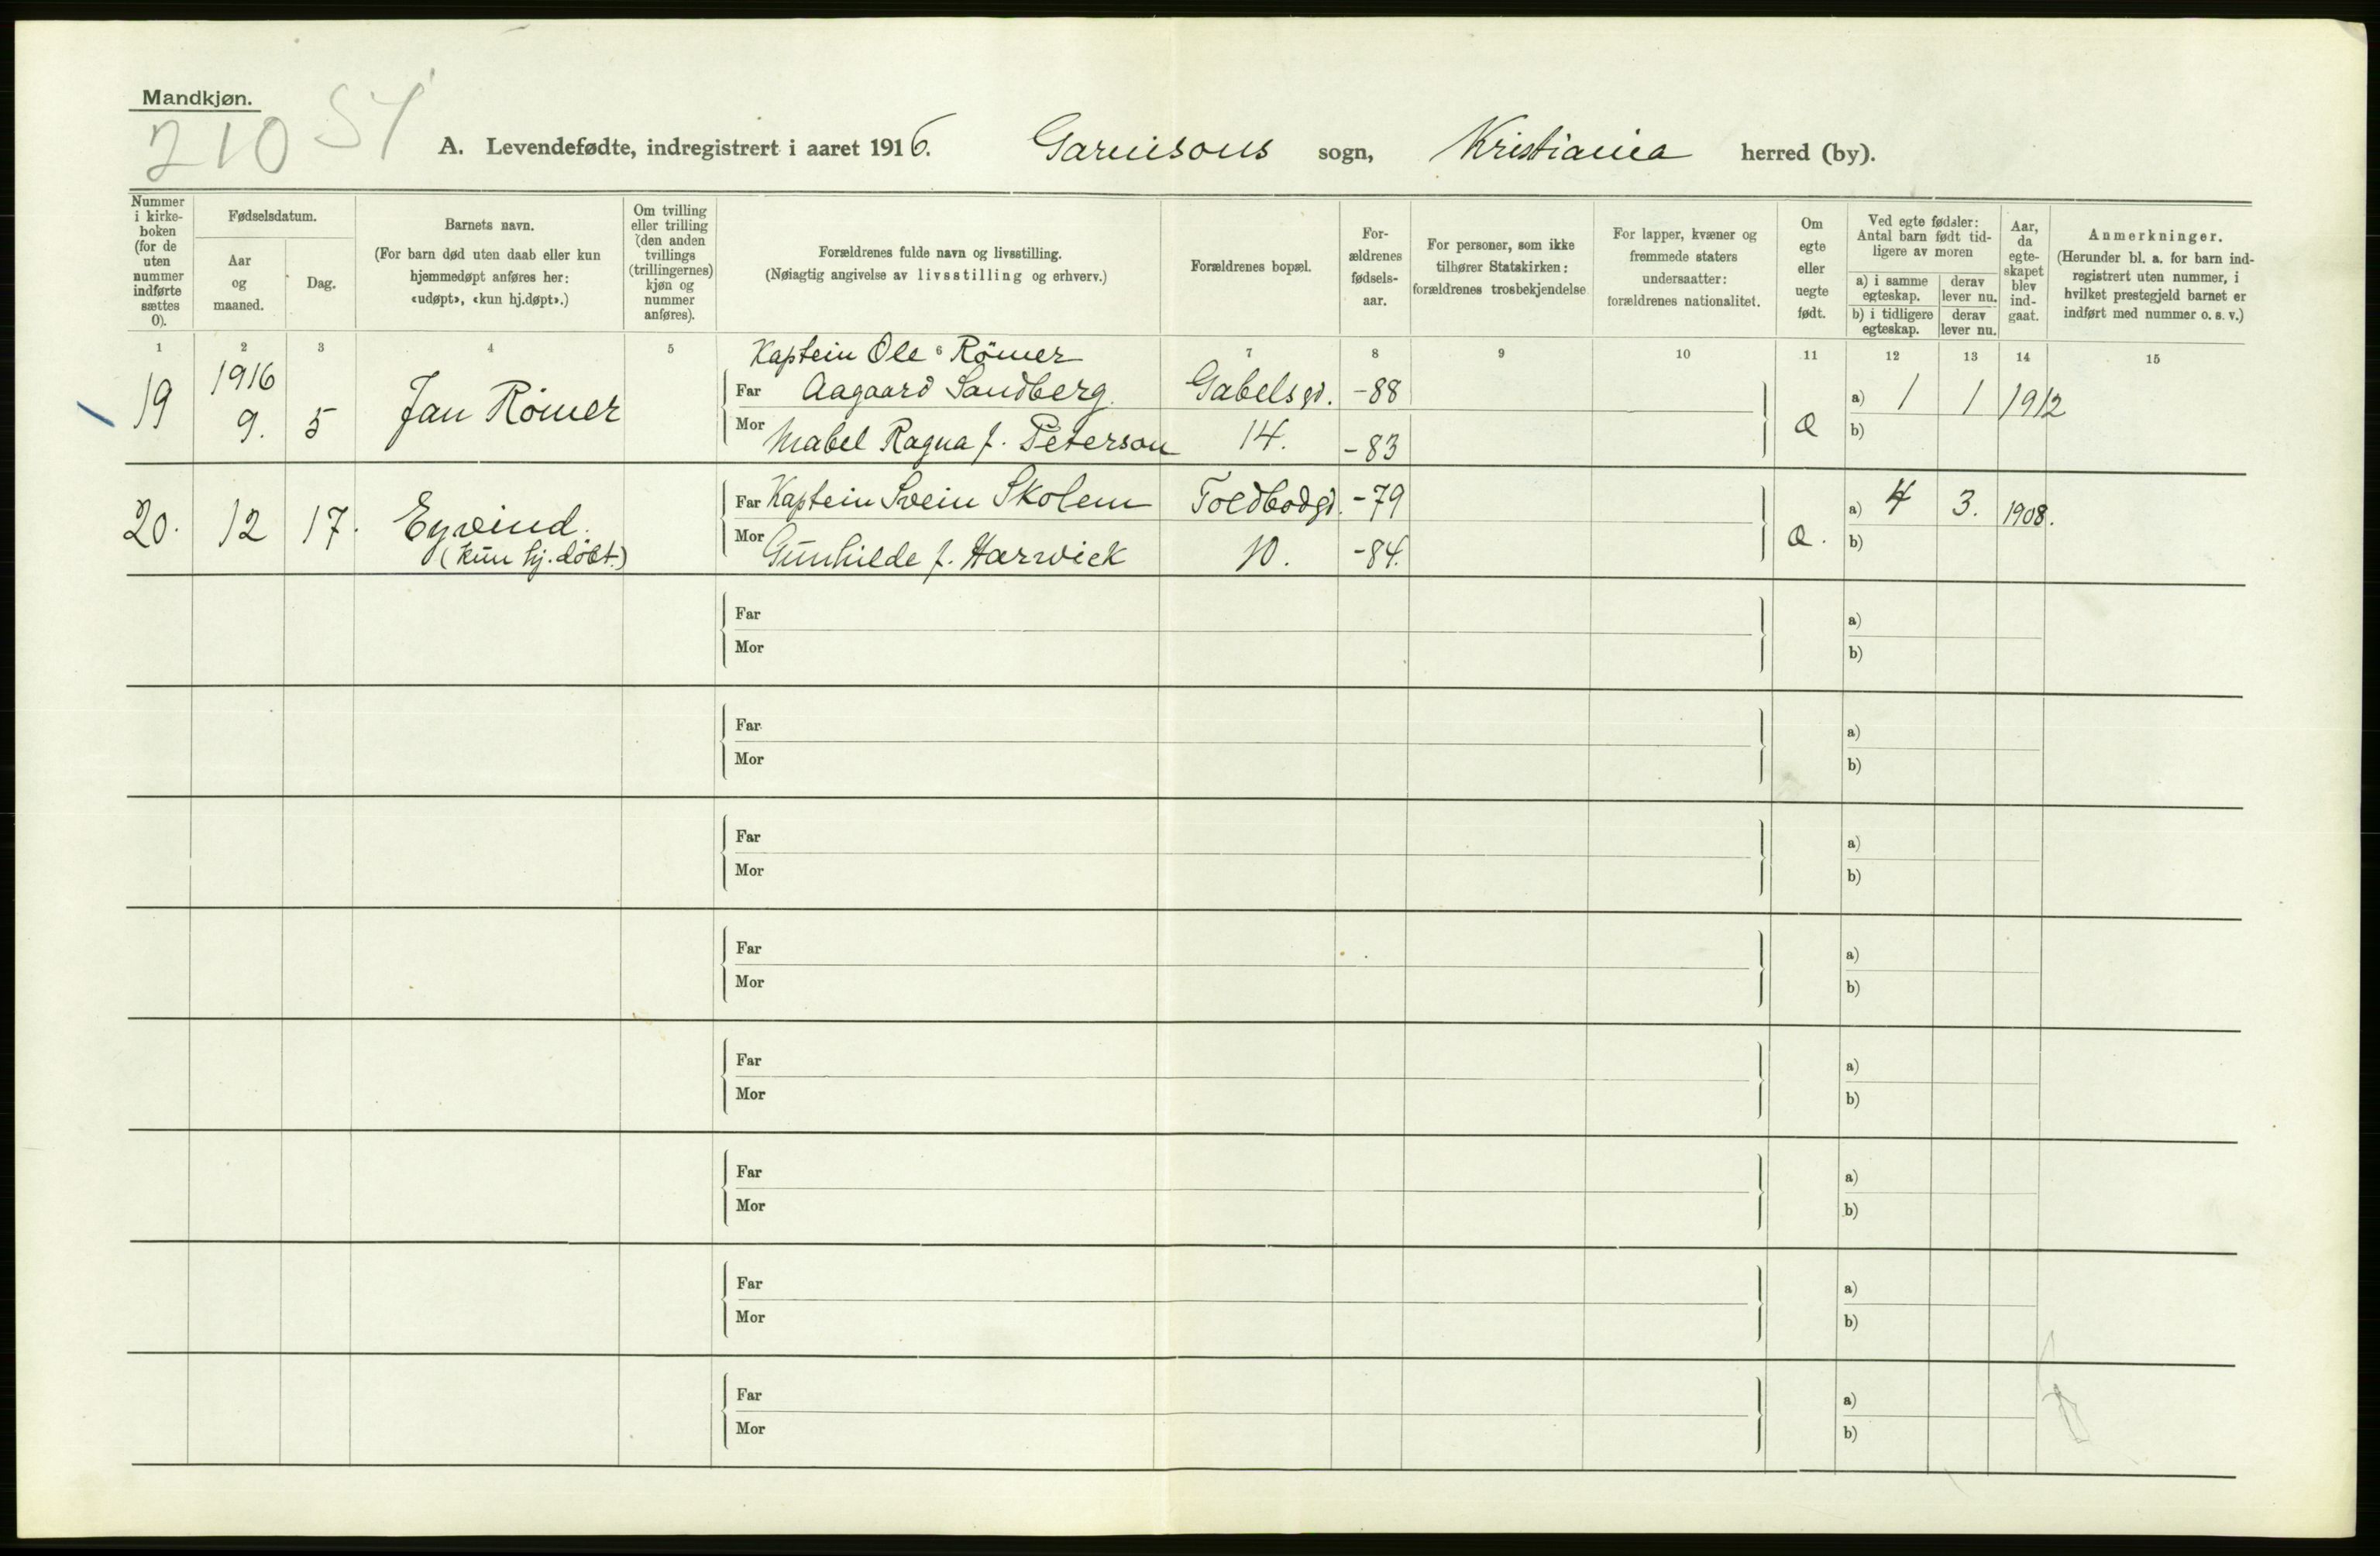 Mandkjøn.
210 51
A. Levendefødte, indregistrert i aaret 1916. Garnisons sogn, Kristiania herred (by).
Nummer i kirke-boken (for de uten nummer indførte sættes 0).
Fødselsdatum.
Aar og maaned.
Dag.
Barnets navn.
(For barn død uten daab eller kun hjemmedøpt anføres her: «udøpt», «kun hj.døpt».)
Om tvilling eller trilling (den anden tvillings (trillingernes) kjøn og nummer anføres).
Forældrenes fulde navn og livsstilling.
(Nøiagtig angivelse av livsstilling og erhverv.)
Forældrenes bopæl.
For-ældrenes fødsels-aar.
For personer, som ikke tilhører Statskirken: forældrenes trosbekjendelse
For lapper, kvæner og fremmede staters undersaatter: forældrenes nationalitet.
Om egte eller uegte født.
Ved egte fødsler: Antal barn født tid-ligere av moren
a) i samme egteskap.
derav lever nu.
b) i tidligere egteskap.
derav lever nu.
Aar, da egte-skapet blev ind-gaat.
Anmerkninger.
(Herunder bl. a. for barn ind-registrert uten nummer, i hvilket prestegjeld barnet er indført med nummer o. s. v.)
1 2 3 4 5 6 7 8 9 10 11 12 13 14 15
Kaptein Ole Römer
19 1916 9. 5 Jan Römer Far Aagaard Sandberg. Gabelsgd. -88 a) 1 1 1912
Mor Mabel Ragna f. Peterson 14. -83 a b)
20. 12 17. Eyvind. Far Kaptein Svein Skolem Toldbodgd. -79 a) 4 3. 1908.
(kun hj. döbt.) Mor Gunhilde f. Harwick 10. -84. a. b)
Far a)
Mor b)
Far a)
Mor b)
Far a)
Mor b)
Far a)
Mor b)
Far a)
Mor b)
Far a)
Mor b)
Far a)
Mor b)
Far a)
Mor b)